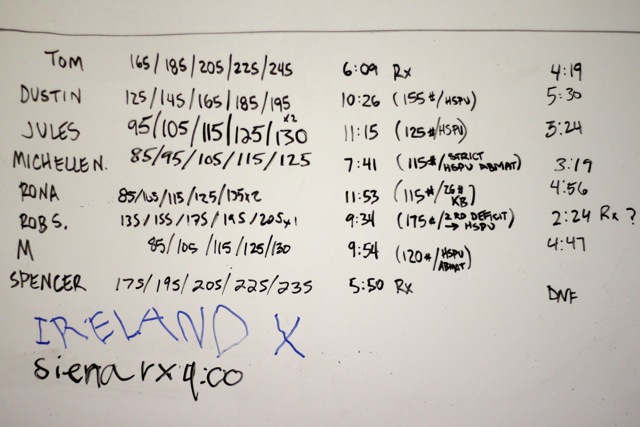 TOM 165/185/205/225/245 6:09 Rx 4:19
DUSTIN 125/145/165/185/195 10:26 (155#/HSPU) 5:30
JULES 95/105/115/125/130 x2 11:15 (125#/HSPU) 3:24
MICHELLE N. 85/95/105/115/125 7:41 (115#/STRICT HSPU ABMAT) 3:19
RONA 85/105/115/125/135x2 11:53 (115#/26# KB) 4:56
ROB S. 135/155/175/195/205x1 9:34 (175#/2RD DEFICIT → HSPU) 2:24 Rx ?
M 85/105/115/125/130 9:54 (120#/HSPU ABMAT) 4:47
SPENCER 175/195/205/225/235 5:50 Rx DNF
IRELAND X
siena rx 4:00